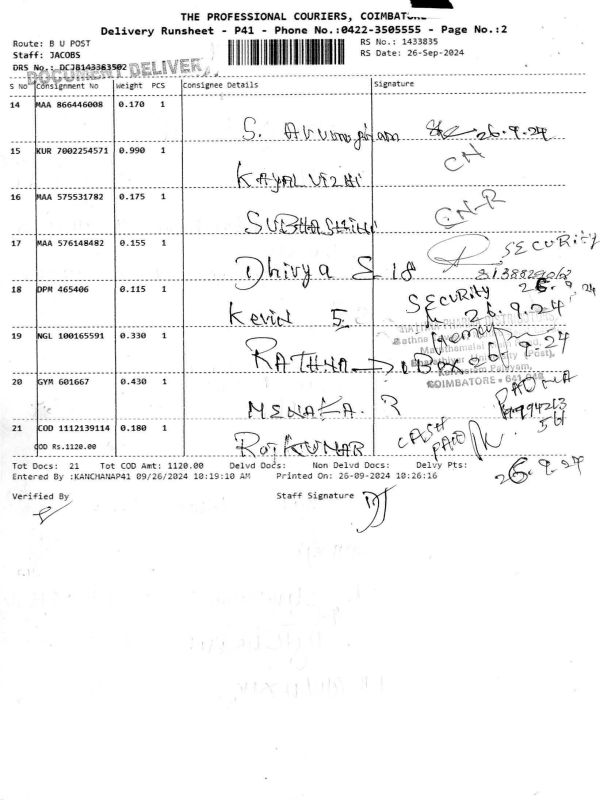 THE PROFESSIONAL COURIERS, COIMBATORE
Delivery Runsheet - P41 - Phone No.:0422-3505555 - Page No.:2
Route: B U POST
RS No.: 1433835
Staff: JACOBS
RS Date: 26-Sep-2024
DRS No.: DCJB143363502
DOCUMENT DELIVER
S No Consignment No Weight PCS Consignee Details Signature
14 MAA 866446008 0.170 1
S. Arumugham 26.9.24
15 KUR 7002254571 0.990 1
KAYALVIZHI CN
16 MAA 575531782 0.175 1
SUBHASHINI CN-R
17 MAA 576148482 0.155 1
Dhivya S 18 SECURITY
18 DPM 465406 0.115 1
Kevin S SECURITY 26.9.24
26.9.24
19 NGL 100165591 0.330 1
RATHNA → BOX 26.9.24
COIMBATORE - 641 046
20 GYM 601667 0.430 1
MENAKA. R
21 COD 1112139114 0.180 1
COD Rs.1120.00
RajKUMAR CASH PAID
Tot Docs: 21 Tot COD Amt: 1120.00 Delvd Docs: Non Delvd Docs: Delvy Pts:
26.9.24
Entered By :KANCHANAP41 09/26/2024 10:19:10 AM Printed On: 26-09-2024 10:26:16
Verified By Staff Signature